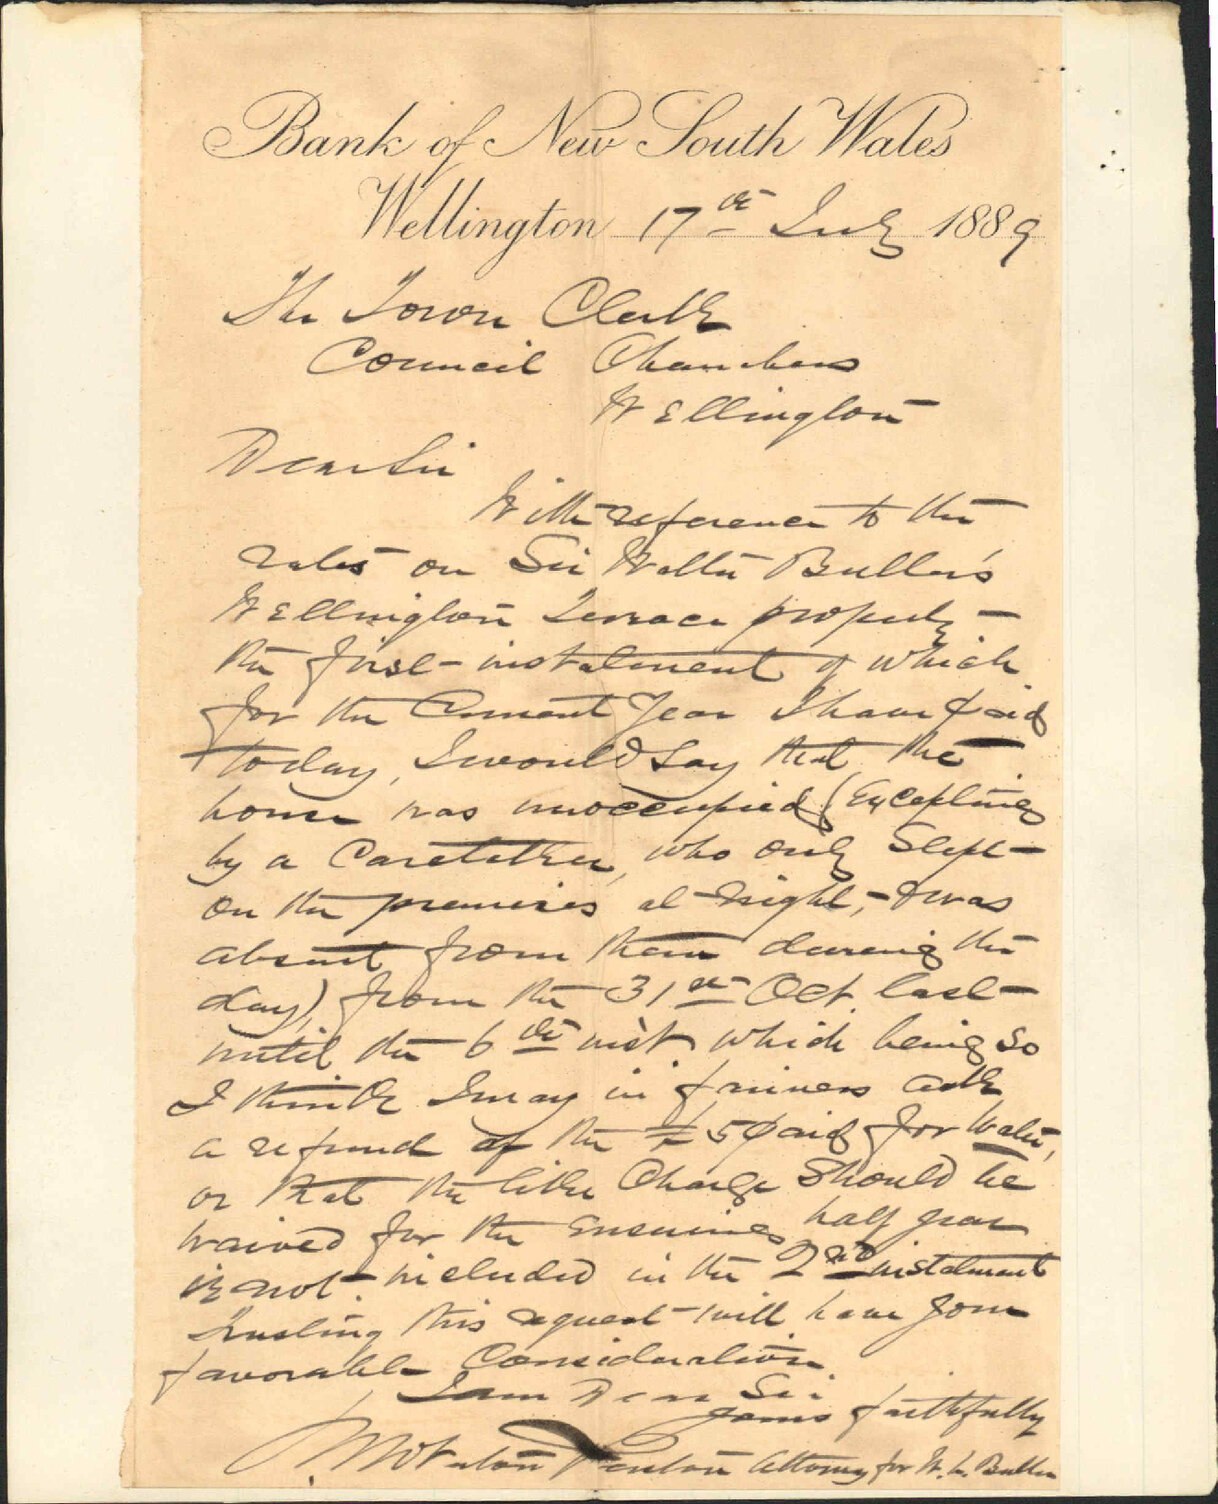 Bank of New South Wales
Wellington 17th July 1889
The Town Clerk
Council Chambers
Wellington
Dear Sir
With reference to the
rates on Sir Walter Buller's
Wellington Terrace property -
the first instalment of which
for the Current Year I have paid
today, I would say that the
house was unoccupied (Excepting
by a Caretaker, who only Slept
on the premises at night, - & was
absent from them during the
day), from the 31st Oct last
until the 6th inst. which being so
I think I may in fairness ask
a refund of the £5 paid for Water,
or that the like Charge Should be
waived for the Ensuing half year
is not included in the 2nd instalment
Trusting this request will have your
favorable Consideration
I am Dear Sir
Yours faithfully
Attorney for W. L. Buller